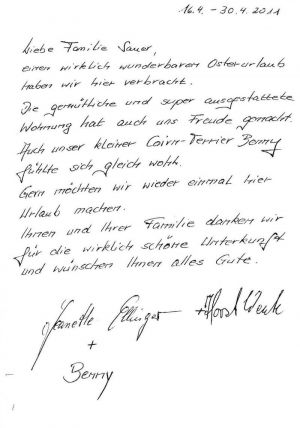 16.4. - 30.4.2011
Liebe Familie Sauer,
einen wirklich wunderbaren Osterurlaub
haben wir hier verbracht.
Die gemütliche und super ausgestattete
Wohnung hat auch uns Freude gemacht.
Auch unser kleiner Cairn-Terrier Benny
fühlte sich gleich wohl.
Gern möchten wir wieder einmal hier
Urlaub machen.
Ihnen und Ihrer Familie danken wir
für die wirklich schöne Unterkunft
und wünschen Ihnen alles Gute.
Jeanette Ellinger + Horst
+
Benny